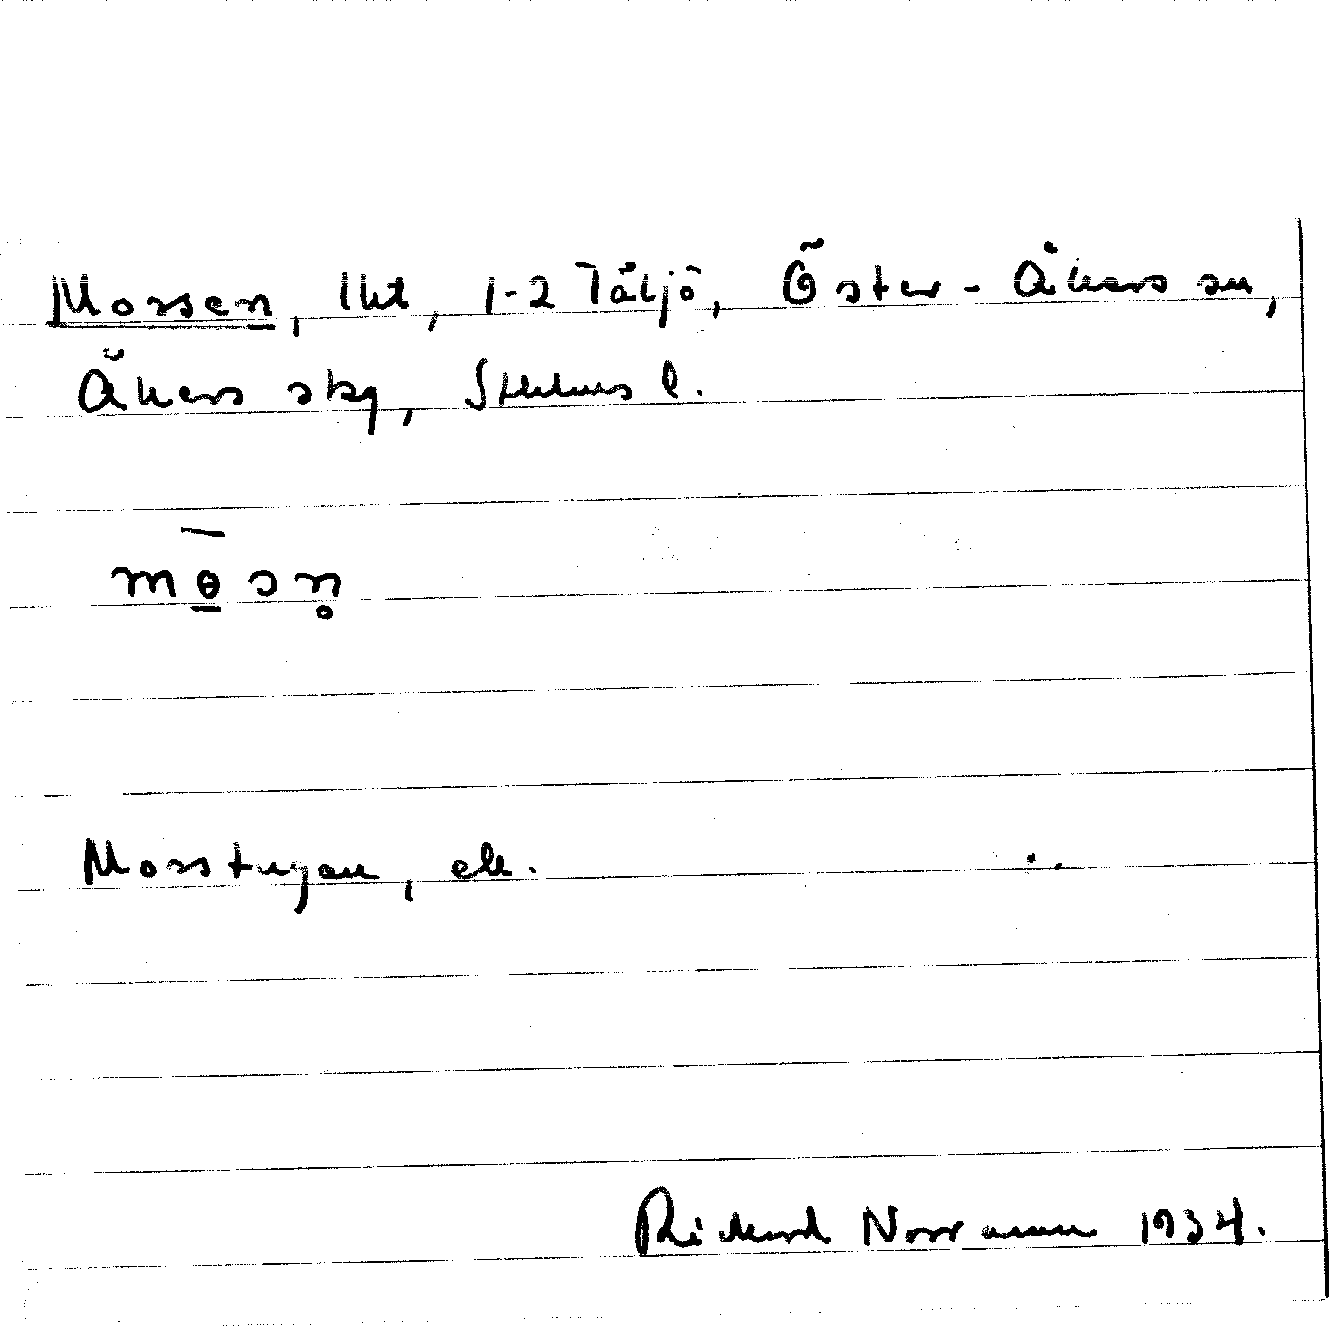 Mossen, lht, 1-2 Täljö, Öster-Åkers sn,
Åkers skg, Sthlms l.
mɵsn̥
Mosstugan, ek.
Rickard Norrman 1934.